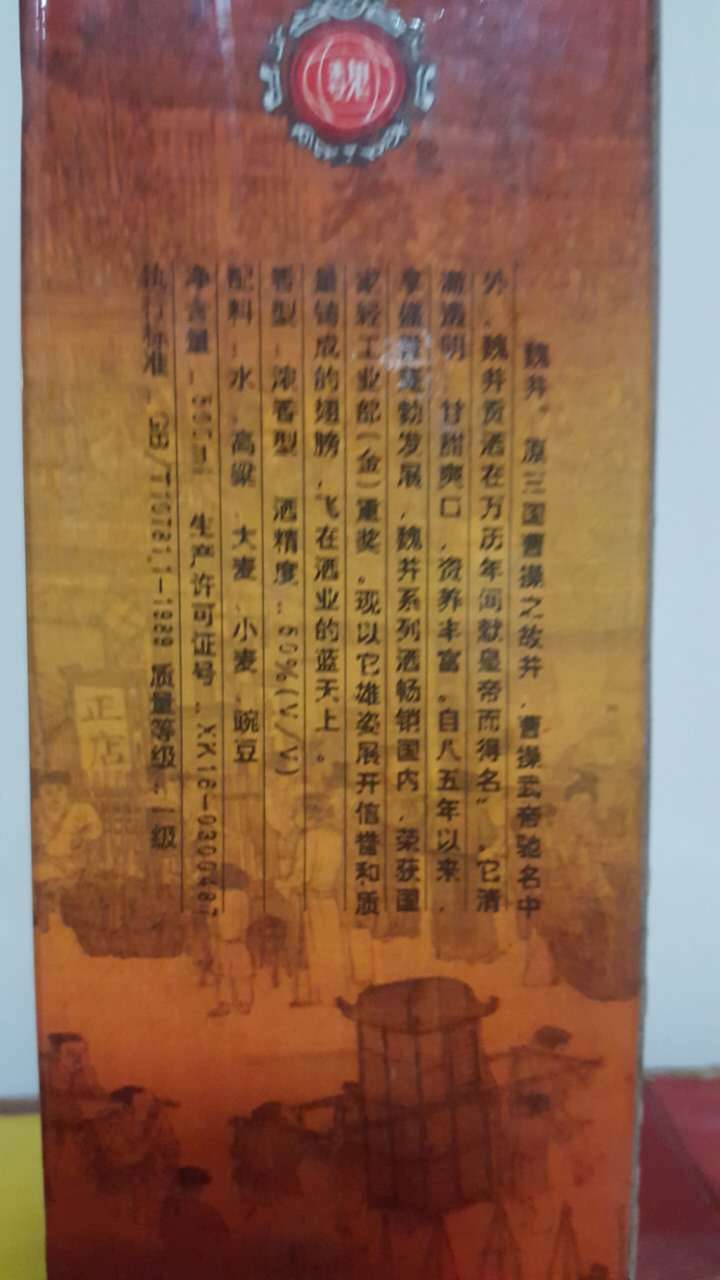 魏
魏井。原三国曹操之故井，曹操武帝驰名中
外，魏井贡酒在万历年间献皇帝而得名”。它清
澈透明、甘甜爽口，资养丰富。自八五年以来，
蓬勃发展，魏井系列酒畅销国内，荣获国
家轻工业部(金)重奖。现以它雄姿展开信誉和质
量铸成的翅膀，飞在酒业的蓝天上。
香型：浓香型 酒精度：50%(V/V)
配料：水、高粱、大麦、小麦、豌豆
净含量：500ml 生产许可证号：XK16-0300487
执行标准：GB/T10781.1-1989 质量等级：一级
正店